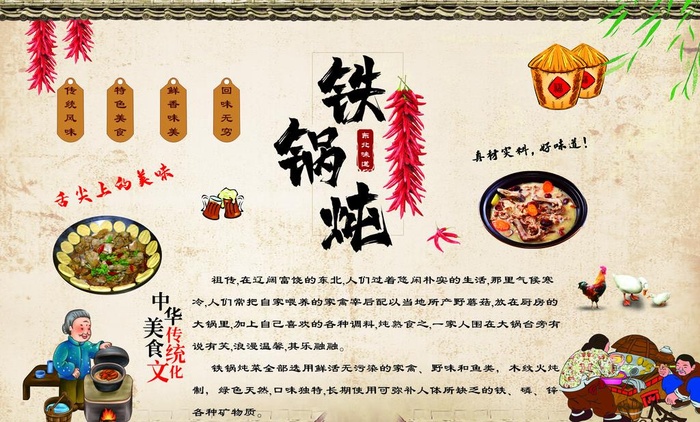 传统风味
特色美食
鲜香味美
回味无穷
铁锅炖
东北味道
真材实料，好味道！
舌尖上的美味
中华传统
美食文化
祖传,在辽阔富饶的东北,人们过着悠闲朴实的生活,那里气候寒
冷,人们常把自家喂养的家禽宰后配以当地所产野蘑菇,放在厨房的
大锅里,加上自己喜欢的各种调料,炖熟食之,一家人围在大锅台旁有
说有笑,浪漫温馨,其乐融融。
铁锅炖菜全部选用鲜活无污染的家禽、野味和鱼类，木纹火炖
制，绿色天然,口味独特,长期使用可弥补人体所缺乏的铁、磷、锌
各种矿物质。